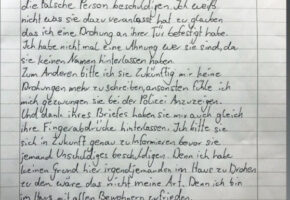 die falsche Person beschuldigen. Ich weiß
nicht was sie dazu veranlasst hat zu glauben
das ich eine Drohung an ihrer Tür befestigt habe.
Ich habe nicht mal eine Ahnung wer sie sind, da
sie keinen Namen hinterlassen haben.
Zum Anderen bitte ich sie Zukünftig mir keine
Drohungen mehr zu schreiben, ansonsten fühle ich
mich gezwungen sie bei der Polizei Anzuzeigen.
Und dank ihres Briefes haben sie mir auch gleich
ihre Fingerabdrücke hinterlassen. Ich bitte sie
sich in Zukunft genau zu Informieren bevor sie
jemand Unschuldiges beschuldigen. Denn ich habe
keinen Grund hier irgendjemanden im Haus zu Drohen
zu dem wäre das nicht meine Art. Denn ich bin
im Haus mit allen Bewohnern zufrieden.